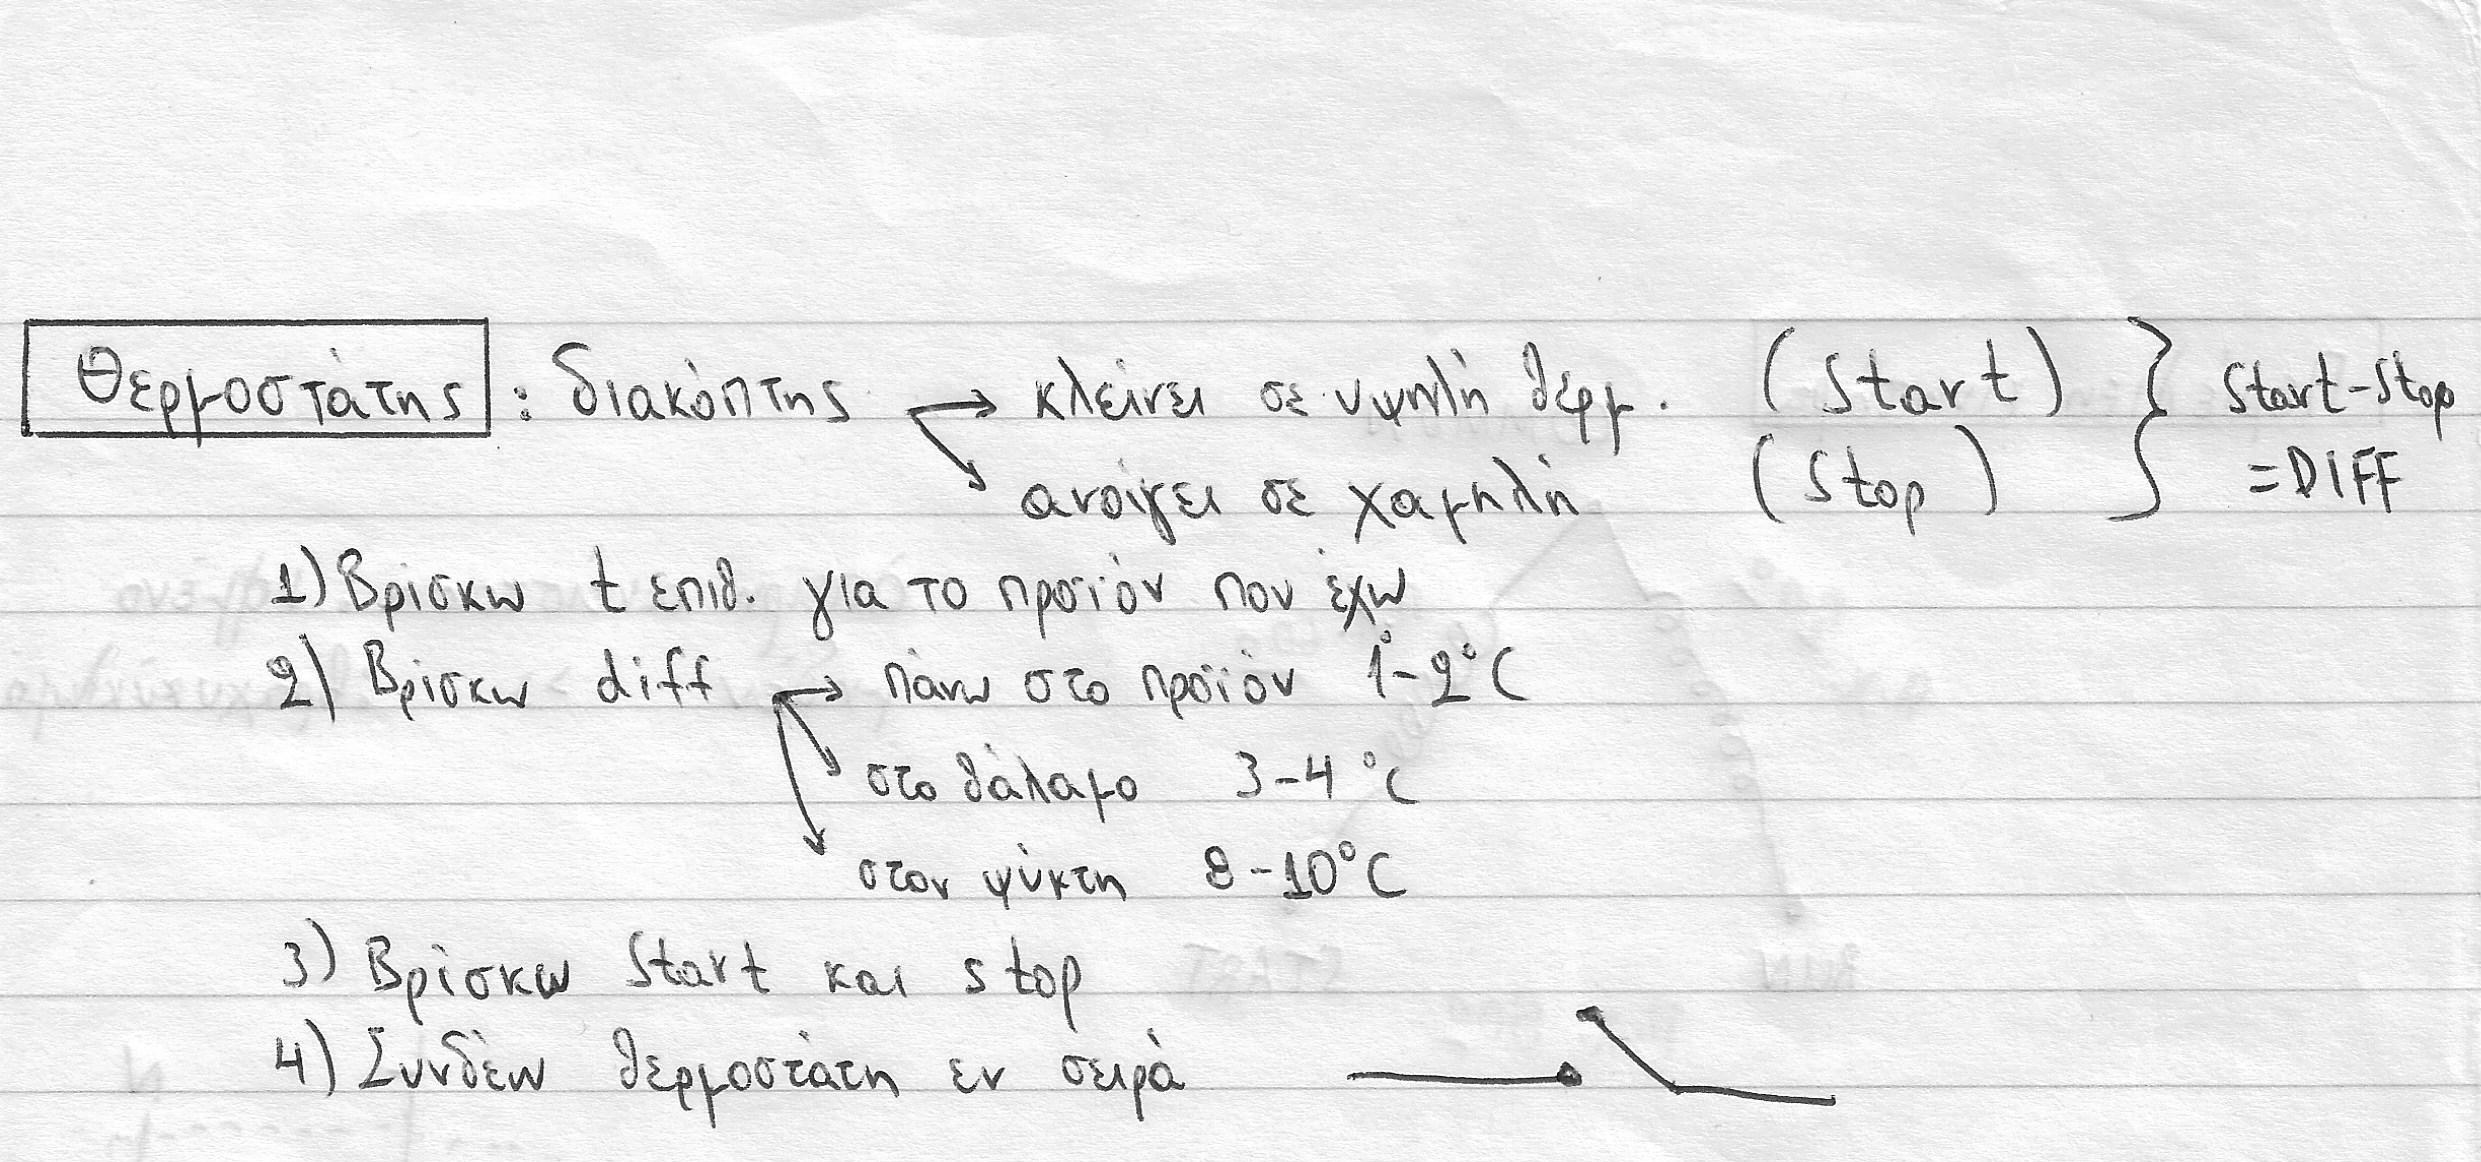 Θερμοστάτης : διακόπτης → κλείνει σε υψηλή θερμ. (Start) } Start-Stop
ανοίγει σε χαμηλή (Stop) = DIFF
1) Βρίσκω t επιθ. για το προϊόν που έχω
2) Βρίσκω diff → πάνω στο προϊόν 1°-2°C
στο θάλαμο 3-4 °C
στον ψύκτη 8-10°C
3) Βρίσκω Start και stop
4) Συνδέω θερμοστάτη εν σειρά